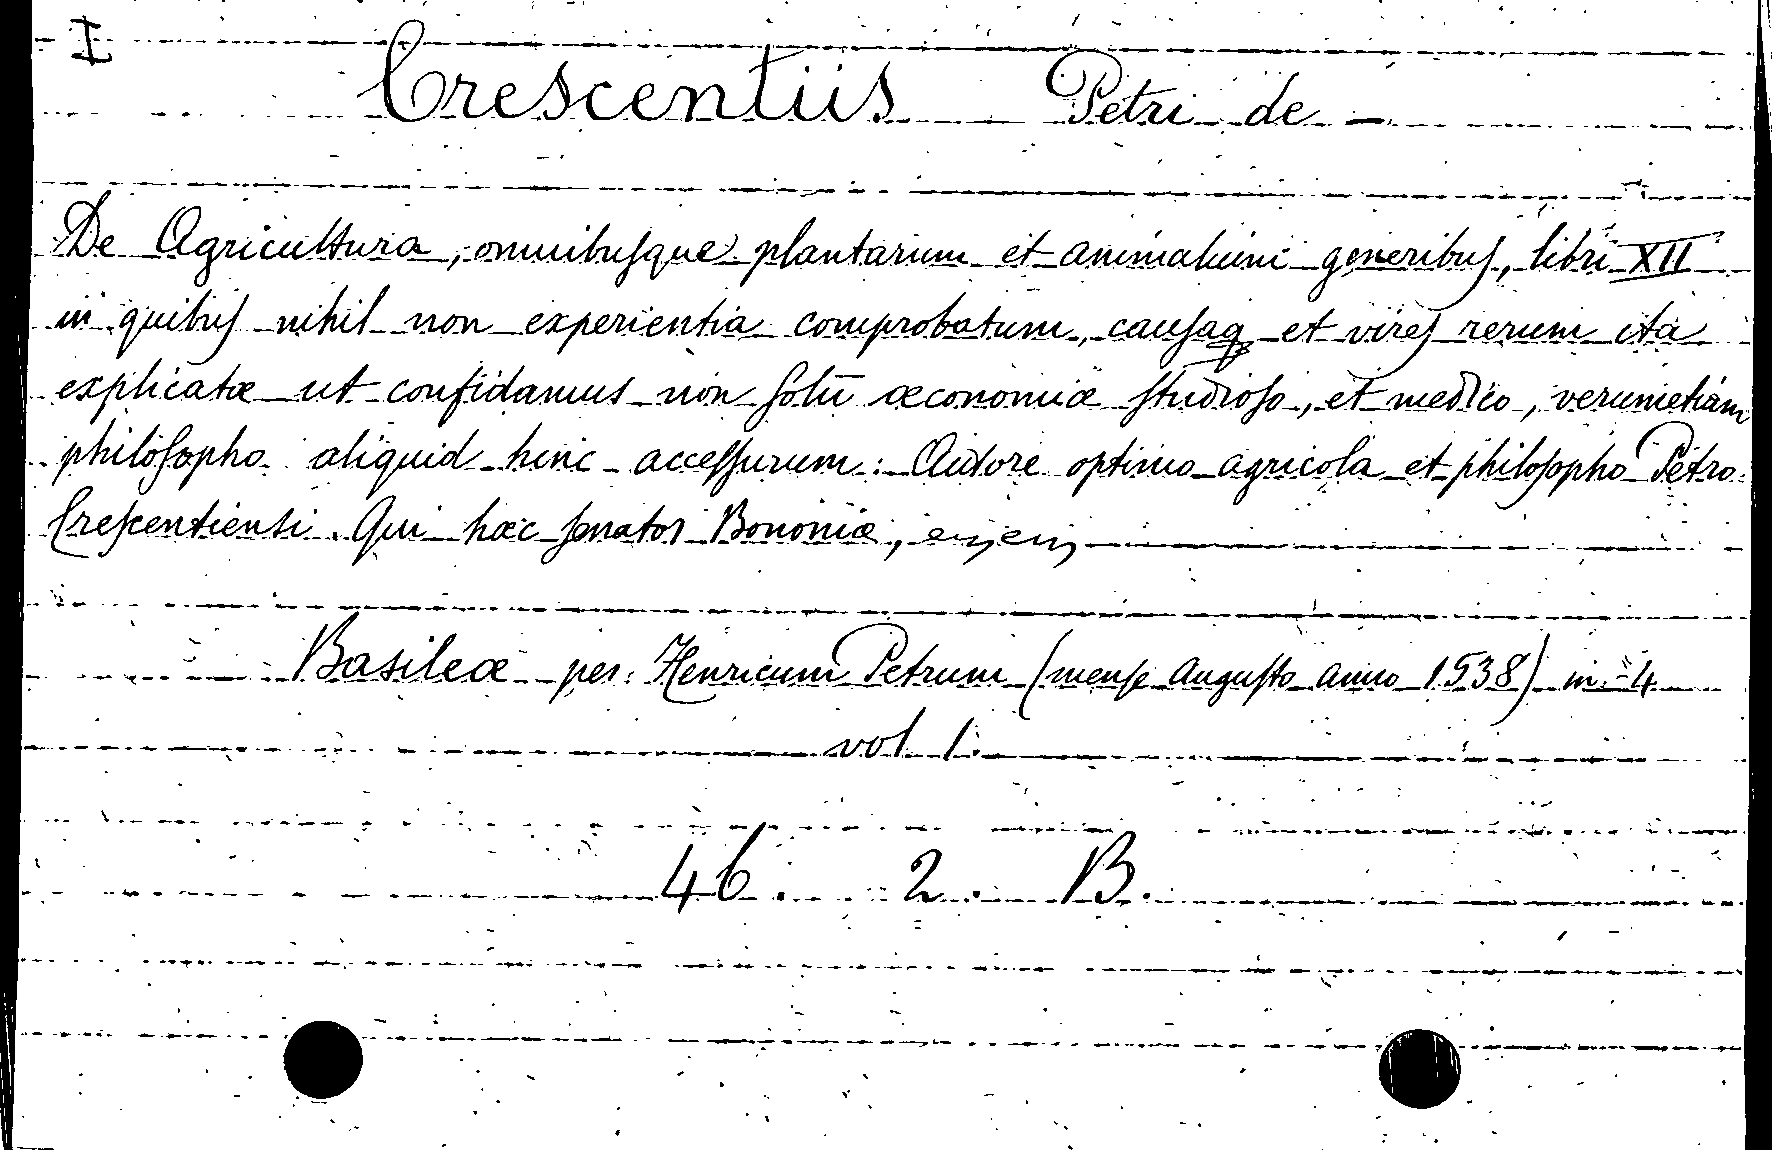 I
Crescentiis Petri de —
De Agricultura, omnibusque plantarum et animalium generibus, libri XII
in quibus nihil non experientia comprobatum, causaq et vires rerum ita
explicatæ ut confidamus non solū œconomiæ studioso, et medico, verumetiam
philosopho aliquid hinc accessurum: Autore optimo agricola et philosopho Petro
Crescentiensi. Qui hæc senator Bononiæ,
Basileæ per Henricum Petrum (mense Augusto anno 1538) in-4
vol 1.
46. 2. B.